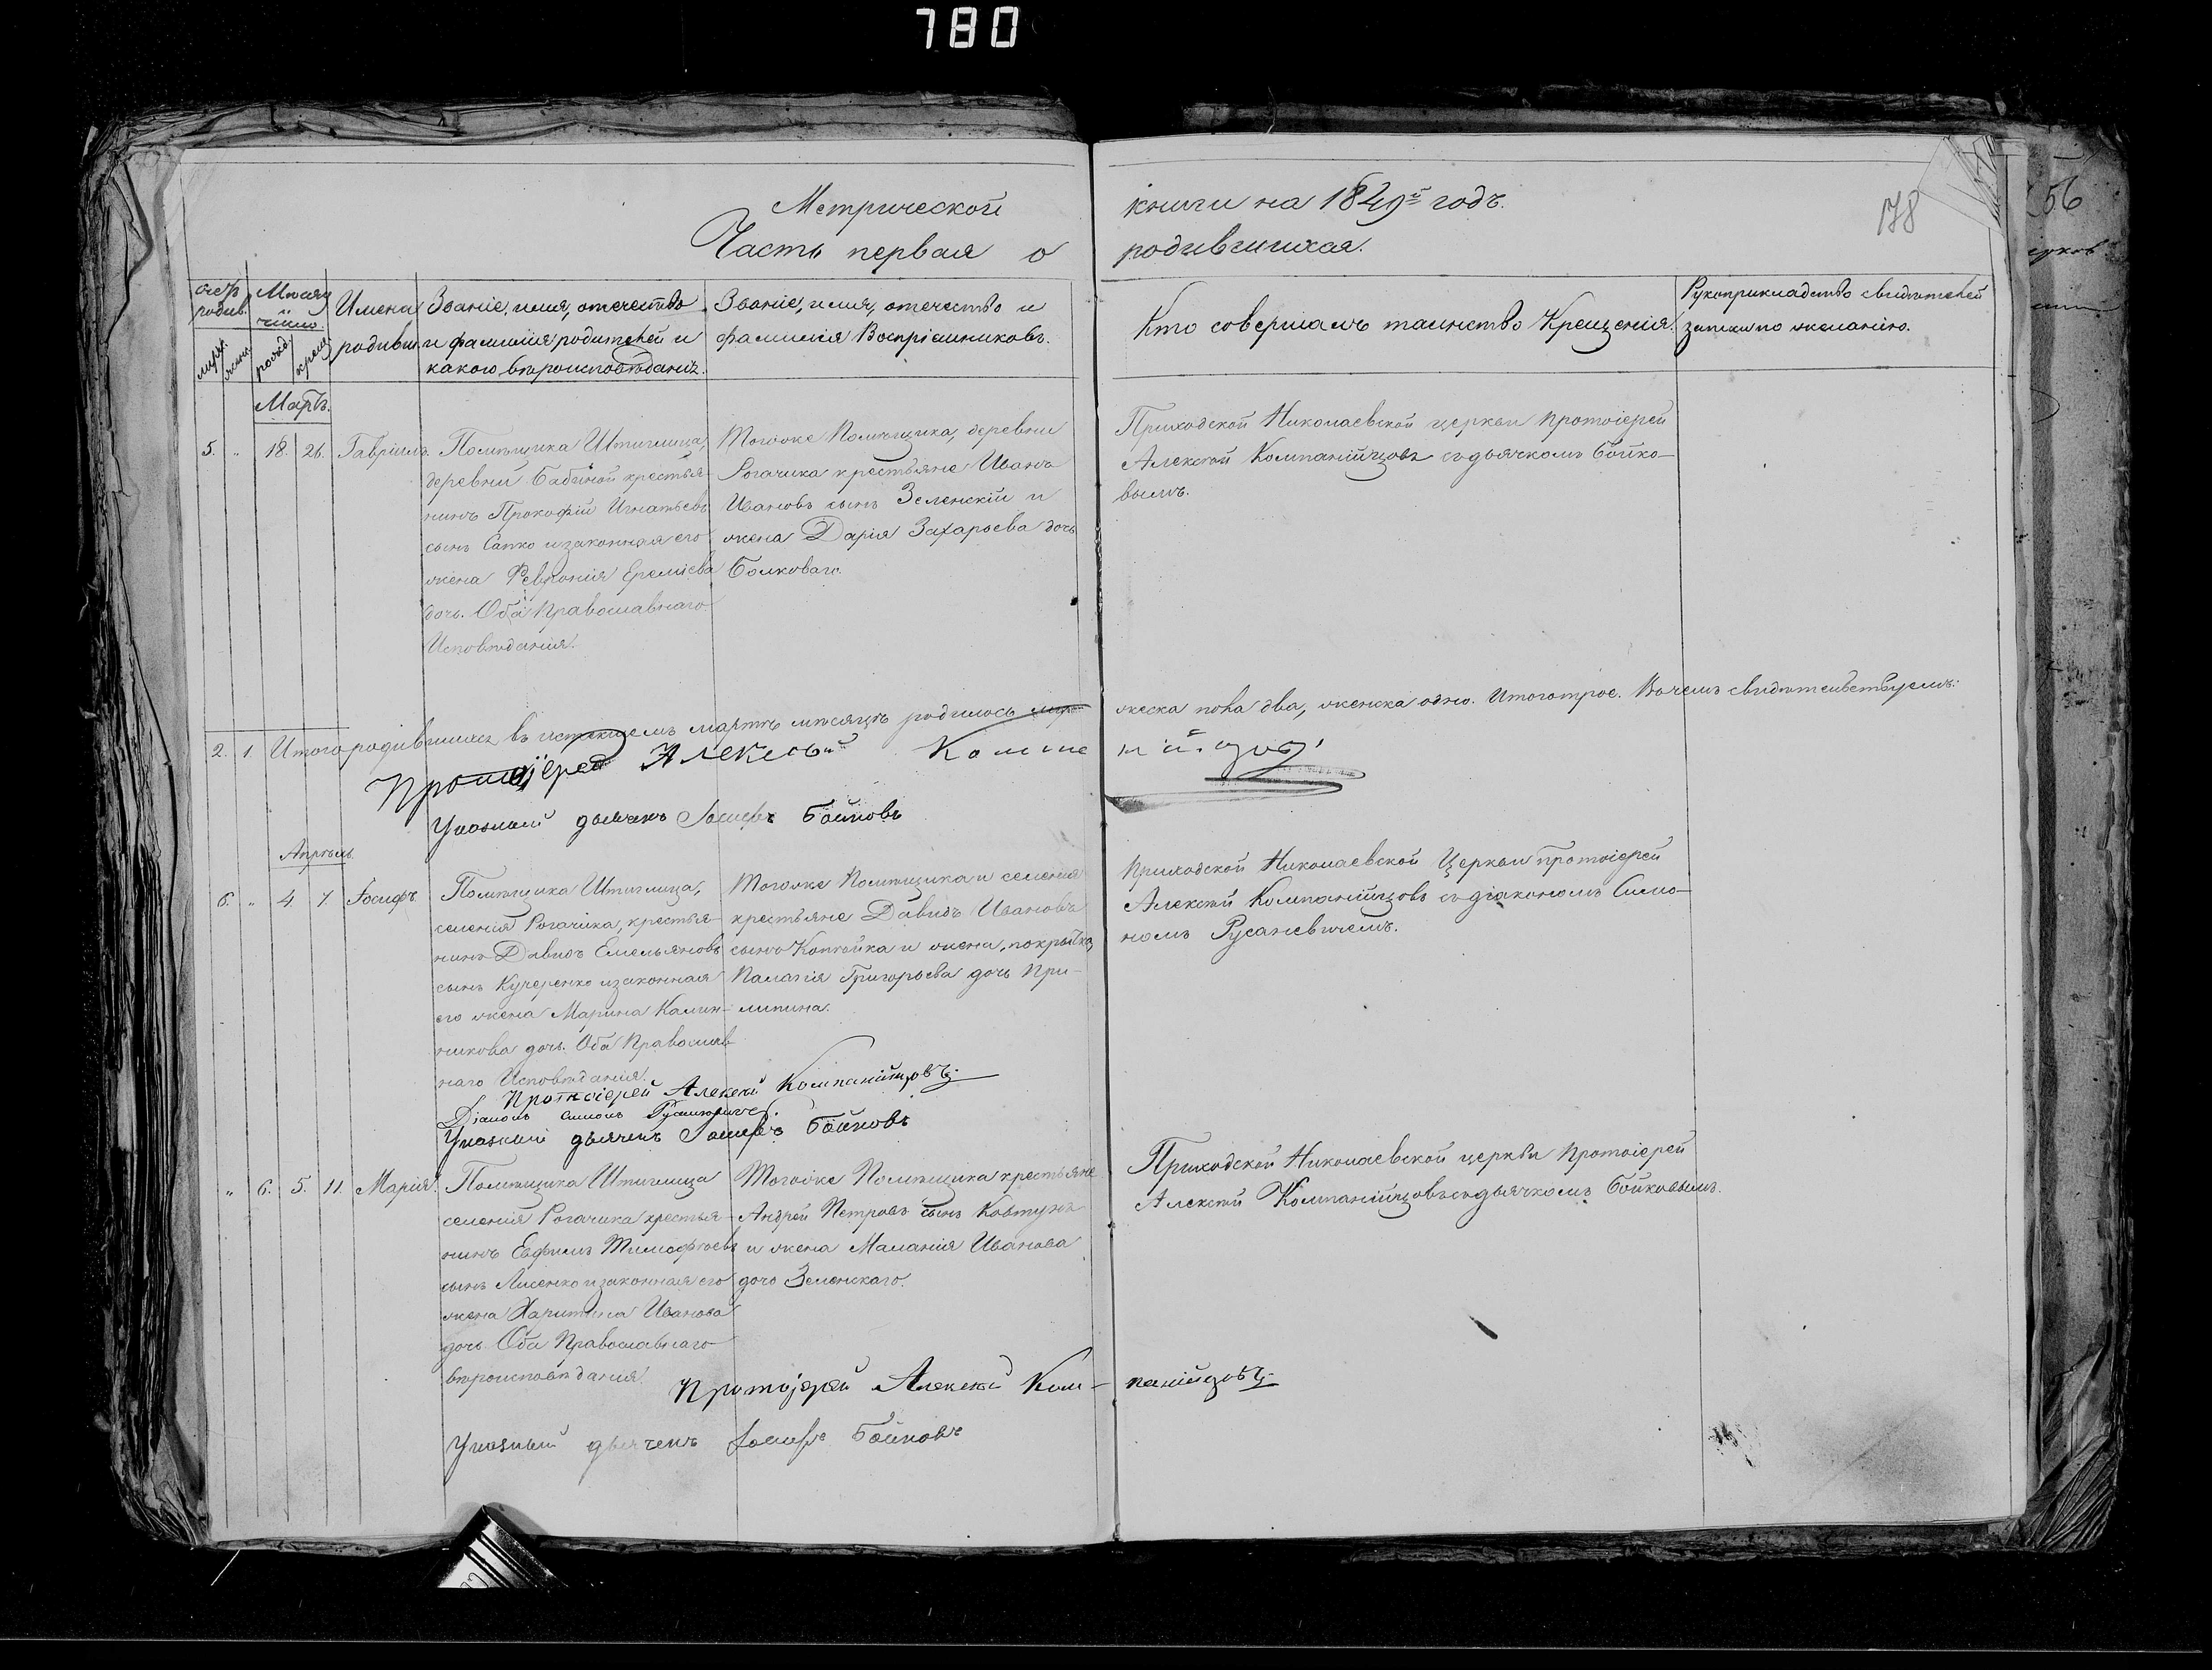 780
Метрической книги на 1849й годъ.
178
Часть первая о родившихся.
56
счетъ родив.
муж.
женс.
Мѣсяц число
рожд.
крещ.
Имена родивш
Званіе, имя, отечество
и фамилія родителей и
какого вѣроисповѣданія.
Званіе, имя, отечество и
фамилія Воспріемниковъ.
Кто совершалъ таинство Крещенія.
Рукоприкладство свидѣтелей
записи по желанію.
Мартъ.
5. " 18. 26. Гавріилъ.
Помѣщика Штиглица,
деревни Бабиной крестья-
нинъ Прокофій Игнатьевъ
сынъ Сапко и законная его
жена Февронія Еремѣева
дочь. Оба Православнаго
Исповѣданія.
Тогоже Помѣщика, деревни
Рогачика крестьяне Иванъ
Ивановъ сынъ Зеленскій и
жена Дарія Захарьева дочь
Волковаго.
Приходской Николаевской церкви протоіерей
Алексѣй Компанійцовъ съ дьячкомъ Бойко-
вымъ.
2. 1. Итого родившихся въ истекшемъ мартѣ мѣсяцѣ родилось муж-
жеска пола два, женска одно. Итого трое. Въ чемъ свидѣтельствуемъ:
Протоіерей Алексѣй Компанійцовъ
Указный дьячекъ Іосифъ Бойковъ
Апрѣль.
6. " 4. 7. Іосифъ
Помѣщика Штиглица,
селенія Рогачика, крестья-
нинъ Давидъ Емельяновъ
сынъ Кучеренко и законная
его жена Марина Калин-
никова дочь. Оба Православ
наго Исповѣданія.
Тогоже Помѣщика и селенія
крестьяне Давидъ Ивановъ
сынъ и жена, покрытка,
Палагія Григорьева дочь При-
липина.
Приходской Николаевской Церкви протоіерей
Алексѣй Компанійцовъ съ діакономъ Симо-
номъ Русаневичемъ.
Протоіерей Алексѣй Компанійцовъ.
Діаконъ Симонъ Русаневичъ.
Указный дьячекъ Іосифъ Бойковъ
" 6. 5. 11. Марія.
Помѣщика Штиглица
селенія Рогачика крестья-
нинъ Евфимъ Тимофѣевъ
сынъ Лисенко и законная его
жена Харитина Иванова
дочь Оба Православнаго
вѣроисповѣданія.
Тогоже Помѣщика крестьяне
Андрей Петровъ сынъ Ковтунъ
и жена Маланія Иванова
дочь Зеленскаго.
Приходской Николаевской церкви Протоіерей
Алексѣй Компанійцовъ съ дьячкомъ Бойковымъ.
Протоіерей Алексѣй Ком-панійцовъ
Указный дьячекъ Іосифъ Бойковъ